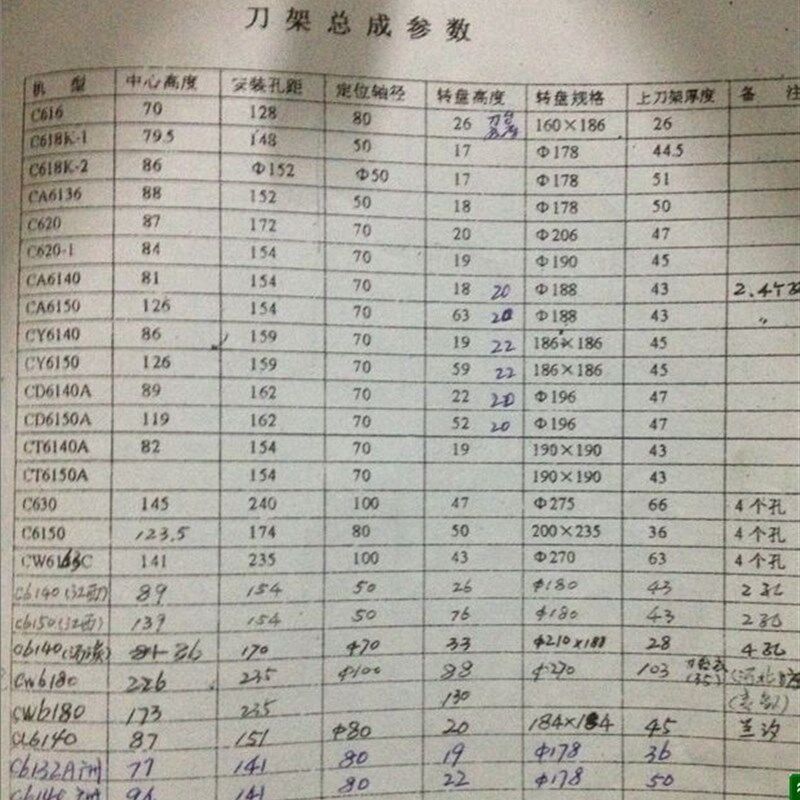 刀架总成参数
机 型 中心高度 安装孔距 定位轴径 转盘高度 转盘规格 上刀架厚度 备 注
C616 70 128 80 26 160×186 26
C618K-1 79.5 148 50 17 Φ178 44.5
C618K-2 86 Φ152 Φ50 17 Φ178 51
CA6136 88 152 50 18 Φ178 50
C620 87 172 70 20 Φ206 47
C620-1 84 154 70 19 Φ190 45
CA6140 81 154 70 18 20 Φ188 43 2.4个孔
CA6150 126 154 70 63 20 Φ188 43 〃
CY6140 86 159 70 19 22 186×186 45
CY6150 126 159 70 59 22 186×186 45
CD6140A 89 162 70 22 20 Φ196 47
CD6150A 119 162 70 52 20 Φ196 47
CT6140A 82 154 70 19 190×190 43
CT6150A 154 70 190×190 43
C630 145 240 100 47 Φ275 66 4个孔
C6150 123.5 174 80 50 200×235 36 4个孔
CW6163C 141 235 100 43 Φ270 63 4个孔
C6140 89 154 50 26 Φ180 43 2孔
C6150 139 154 50 76 Φ180 43 2孔
C6140 86 170 Φ70 33 28 4孔
CW6180 226 235 Φ100 88 Φ270 103 (35) (河北
CW6180 173 235 130
CL6140 87 151 Φ80 20 184×184 45
C6132A 77 141 80 19 Φ178 36
94 141 80 22 Φ178 50